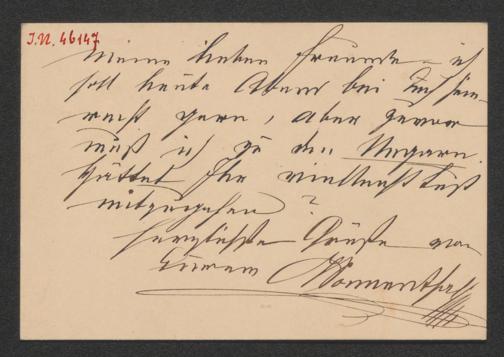 I.N. 46147
Meine lieben Freunde – ich
soll heute Abend bei Euch sein
recht gern, aber zuvor
muß ich zu den Ungarn.
Hättet Ihr vielleicht Lust
mitzugehen?
Herzlichste Grüße von
Eurem Sonnenthal